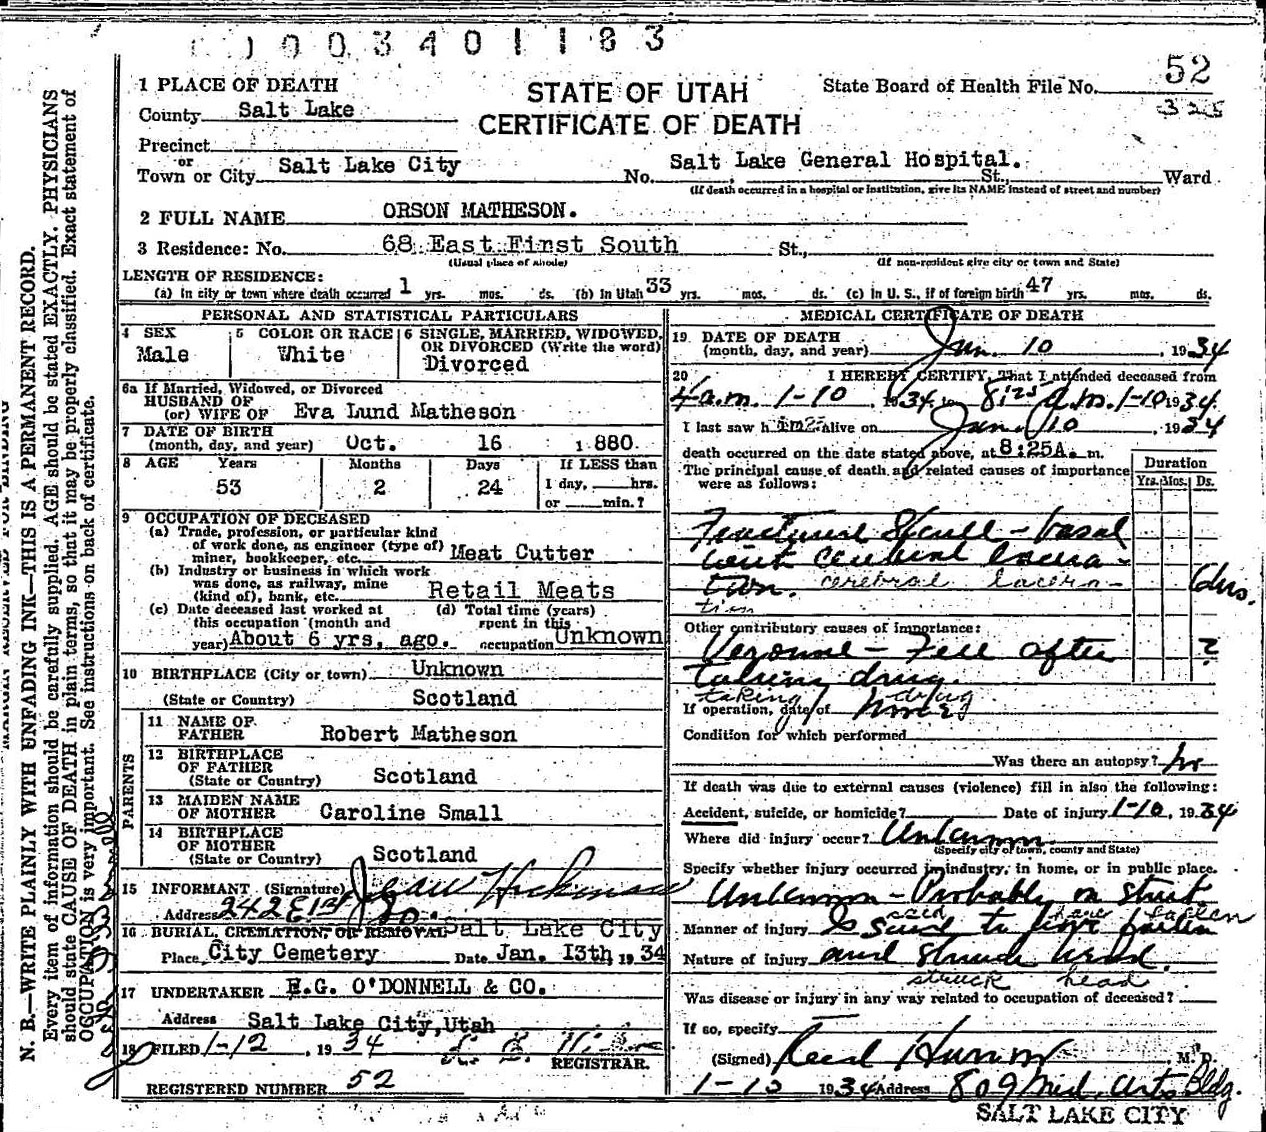 0 0 3 4 0 1 1 8 3
52
325
1 PLACE OF DEATH
STATE OF UTAH
State Board of Health File No.
County Salt Lake
CERTIFICATE OF DEATH
Precinct
or
Town or City Salt Lake City No. Salt Lake General Hospital. St., Ward
(If death occurred in a hospital or institution, give its NAME instead of street and number)
2 FULL NAME ORSON MATHESON.
3 Residence: No. 68 East First South St.,
(Usual place of abode) (If non-resident give city or town and State)
LENGTH OF RESIDENCE:
(a) In city or town where death occurred 1 yrs. mos. ds. (b) In Utah 33 yrs. mos. ds. (c) In U. S., if of foreign birth 47 yrs. mos. ds.
PERSONAL AND STATISTICAL PARTICULARS
4 SEX
Male
5 COLOR OR RACE
White
6 SINGLE, MARRIED, WIDOWED,
OR DIVORCED (Write the word)
Divorced
6a If Married, Widowed, or Divorced
HUSBAND OF
(or) WIFE OF Eva Lund Matheson
7 DATE OF BIRTH
(month, day, and year) Oct. 16 1880
8 AGE Years Months Days If LESS than
53 2 24 1 day, hrs.
or min.?
9 OCCUPATION OF DECEASED
(a) Trade, profession, or particular kind
of work done, as engineer (type of)
miner, bookkeeper, etc. Meat Cutter
(b) Industry or business in which work
was done, as railway, mine
(kind of), bank, etc. Retail Meats
(c) Date deceased last worked at
this occupation (month and
year) About 6 yrs, ago.
(d) Total time (years)
spent in this
occupation Unknown
10 BIRTHPLACE (City or town) Unknown
(State or Country) Scotland
PARENTS
11 NAME OF
FATHER Robert Matheson
12 BIRTHPLACE
OF FATHER
(State or Country) Scotland
13 MAIDEN NAME
OF MOTHER Caroline Small
14 BIRTHPLACE
OF MOTHER
(State or Country) Scotland
15 INFORMANT (Signature) Jean Hickman
Address 242 E 1st So.
16 BURIAL, CREMATION, OR REMOVAL Salt Lake City
Place City Cemetery Date Jan. 13th, 1934
17 UNDERTAKER E.G. O'DONNELL & CO.
Address Salt Lake City, Utah
18 FILED 1-12, 1934
REGISTRAR.
REGISTERED NUMBER 52
MEDICAL CERTIFICATE OF DEATH
19 DATE OF DEATH
(month, day, and year) Jan. 10, 1934
20 I HEREBY CERTIFY, That I attended deceased from
4 a.m. 1-10, 1934 to 8:25 a.m. 1-10 1934.
I last saw him alive on Jan. 10, 1934
death occurred on the date stated above, at 8:25A. m.
The principal cause of death and related causes of importance
were as follows:
Duration
Yrs. Mos. Ds.
Fractured Skull - basal
with cerebral lacera-
tion. cerebral lacera-
tion
6 hrs.
Other contributory causes of importance:
Veronal - Fell after ?
taking drug.
taking drug
If operation, date of none
Condition for which performed
Was there an autopsy? no
If death was due to external causes (violence) fill in also the following:
Accident, suicide, or homicide? Date of injury 1-10, 1934
Where did injury occur? Unknown
(Specify city or town, county and State)
Specify whether injury occurred in industry, in home, or in public place.
Unknown - Probably on street
said have fallen
Manner of injury Is said to have fallen
Nature of injury and struck head.
struck head
Was disease or injury in any way related to occupation of deceased?
If so, specify
(Signed) M. D.
1-10 1934 Address 809 Med. Arts Bldg.
SALT LAKE CITY
N. B.—WRITE PLAINLY WITH UNFADING INK—THIS IS A PERMANENT RECORD.
Every item of information should be carefully supplied. AGE should be stated EXACTLY. PHYSICIANS
should state CAUSE OF DEATH in plain terms, so that it may be properly classified. Exact statement of
OCCUPATION is very important. See instructions on back of certificate.